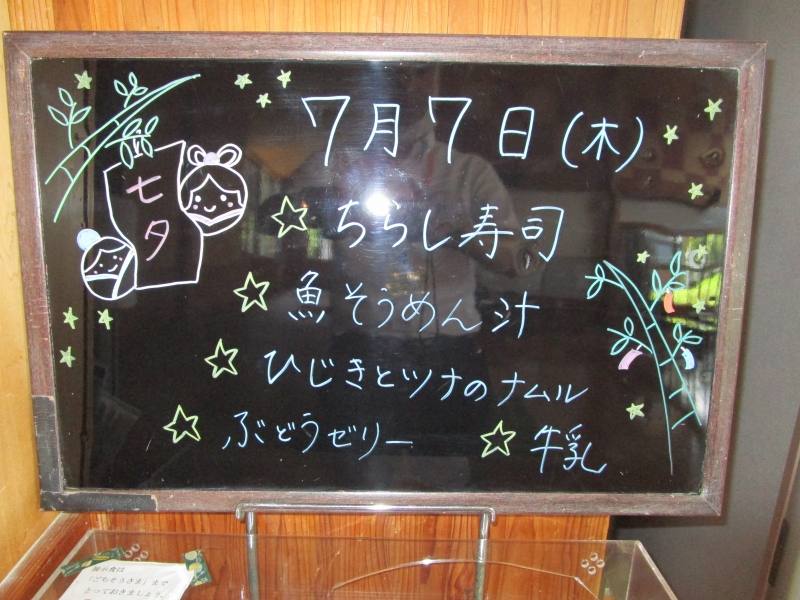 7月7日(木)
七夕
ちらし寿司
魚そうめん汁
ひじきとツナのナムル
ぶどうゼリー 牛乳
「ごちそうさま」まで
とっておきましょう。